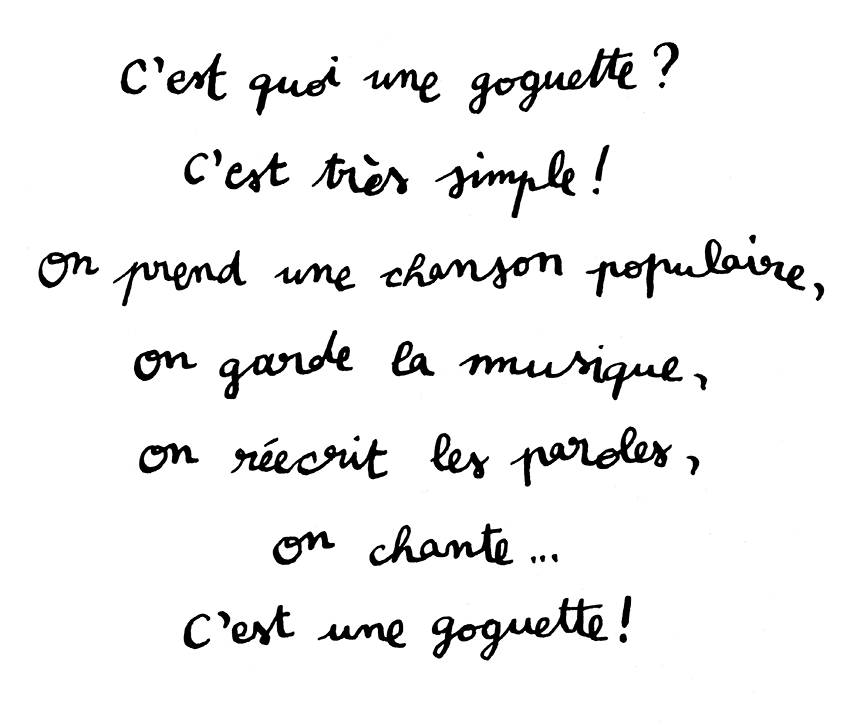 C'est quoi une goguette ?
C'est très simple !
On prend une chanson populaire,
on garde la musique,
on réecrit les paroles,
on chante...
C'est une goguette !